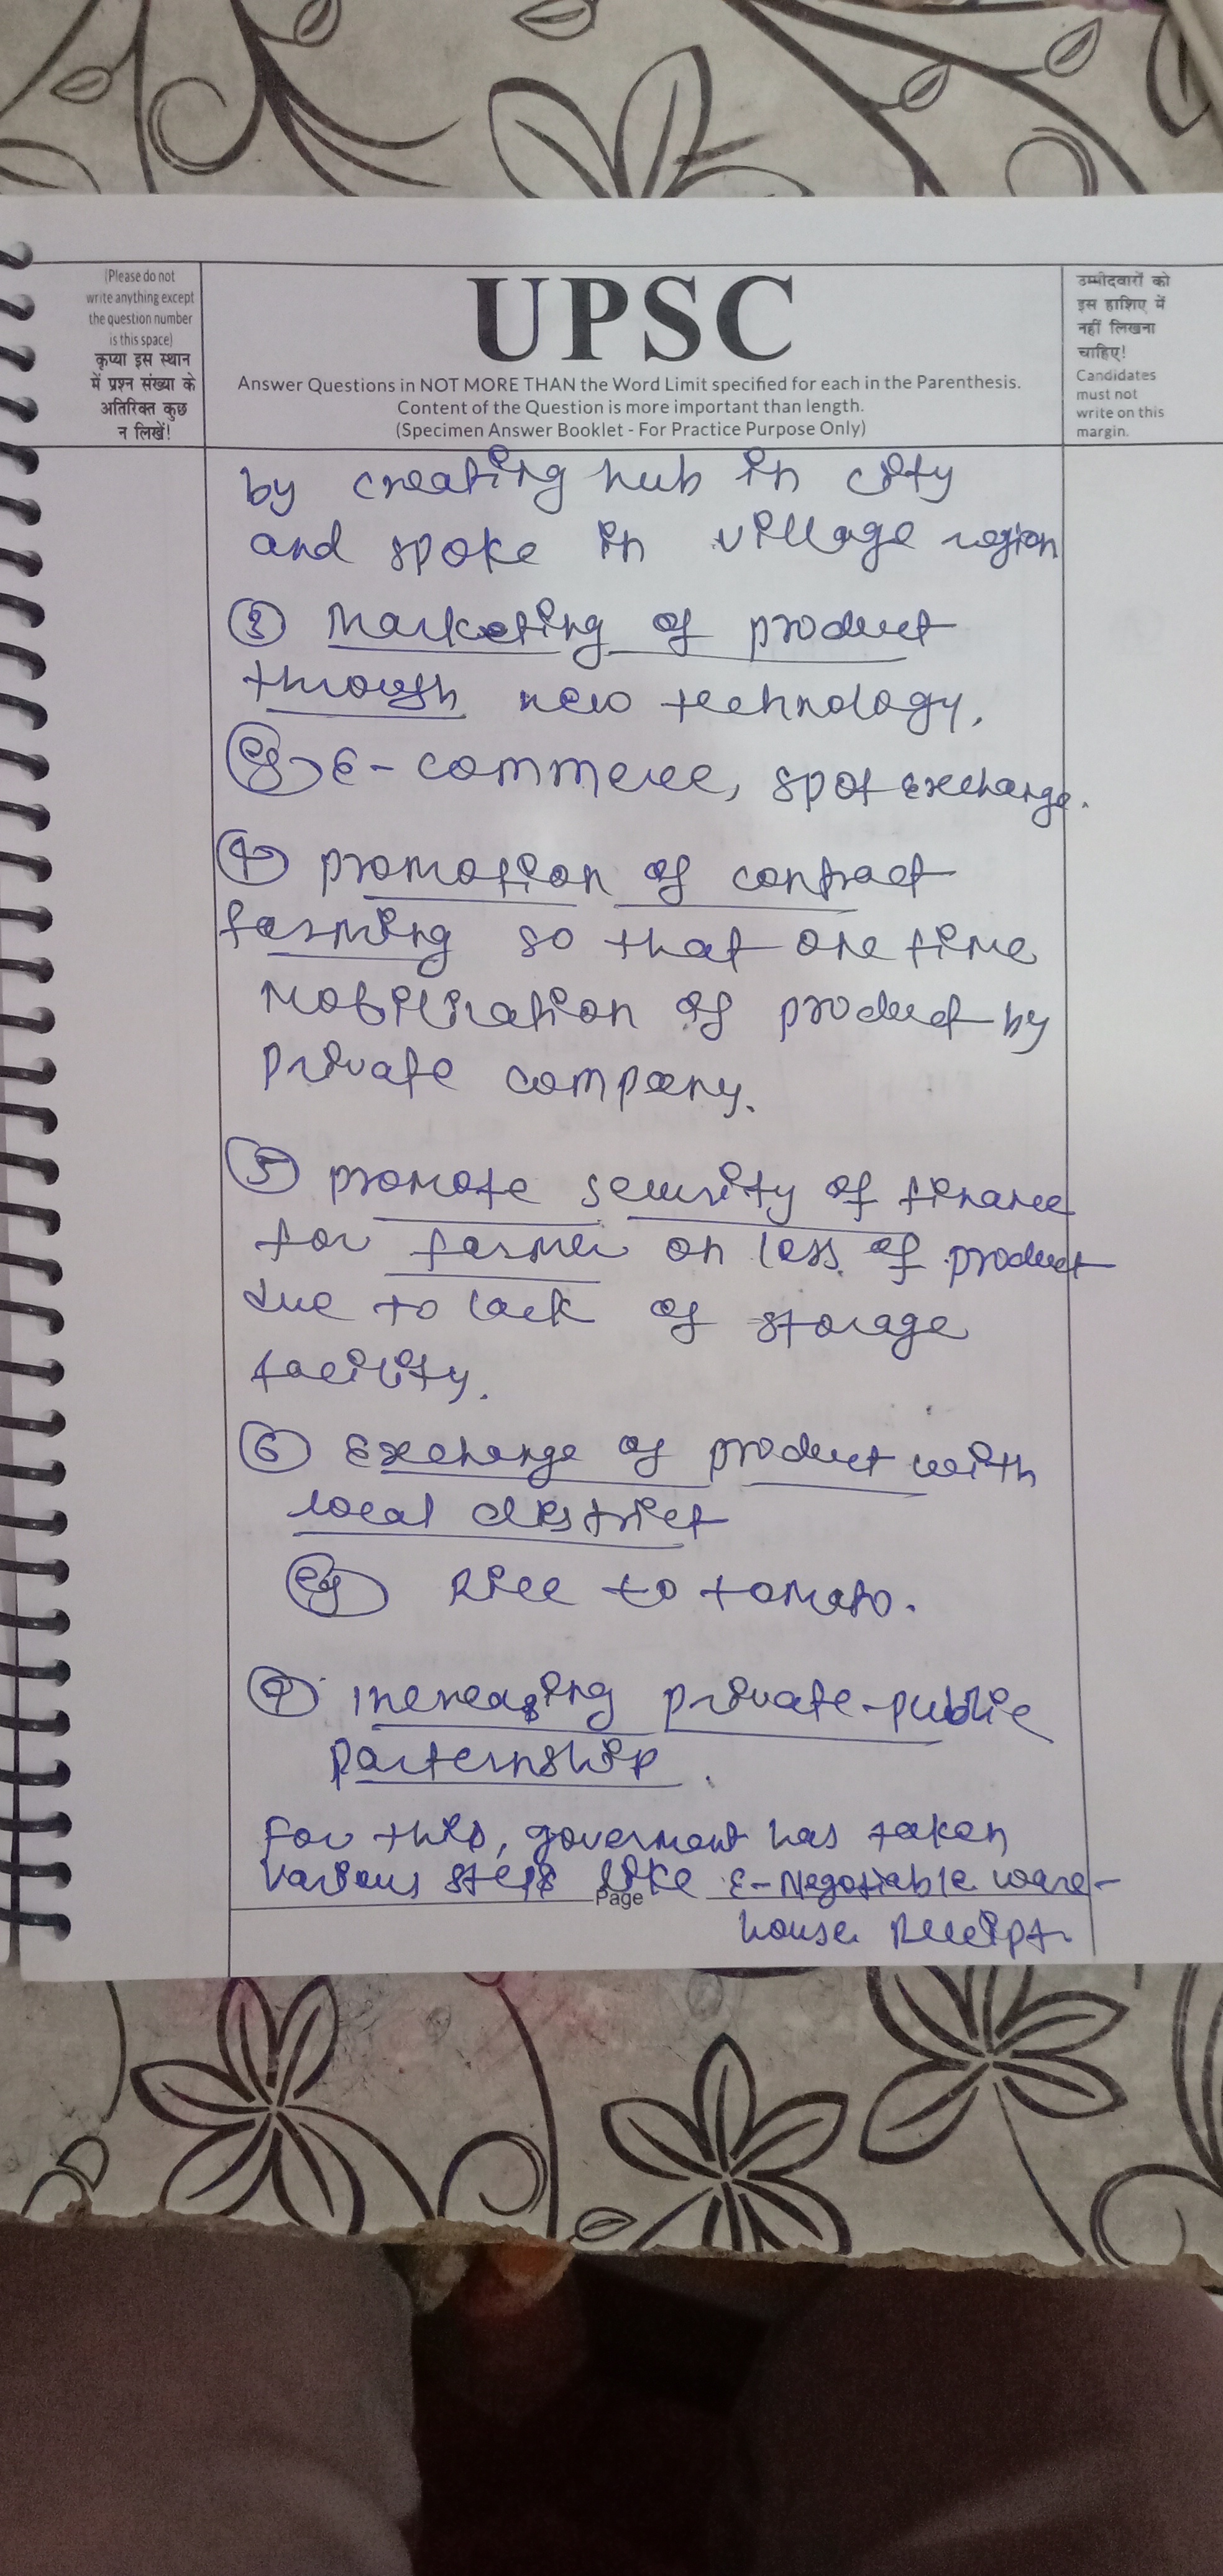 (Please do not
write anything except
the question number
is this space)
कृप्या इस स्थान
में प्रश्न संख्या के
अतिरिक्त कुछ
न लिखें!
UPSC
Answer Questions in NOT MORE THAN the Word Limit specified for each in the Parenthesis.
Content of the Question is more important than length.
(Specimen Answer Booklet - For Practice Purpose Only)
उम्मीदवारों को
इस हाशिए में
नहीं लिखना
चाहिए!
Candidates
must not
write on this
margin.
by creating hub in city
and spoke in village region
③ Marketing of product
through new technology.
eg E-commerce, spot exchange.
④ promotion of contract
farming so that one time
mobilization of product by
private company.
⑤ promote security of finance
for farmer on loss of product
due to lack of storage
facility.
⑥ Exchange of product with
local district
eg Rice to tomato.
⑦ increasing private-public
parternship.
For this, goverment has taken
various steps like E-Negotiable ware-
house Receipt
Page